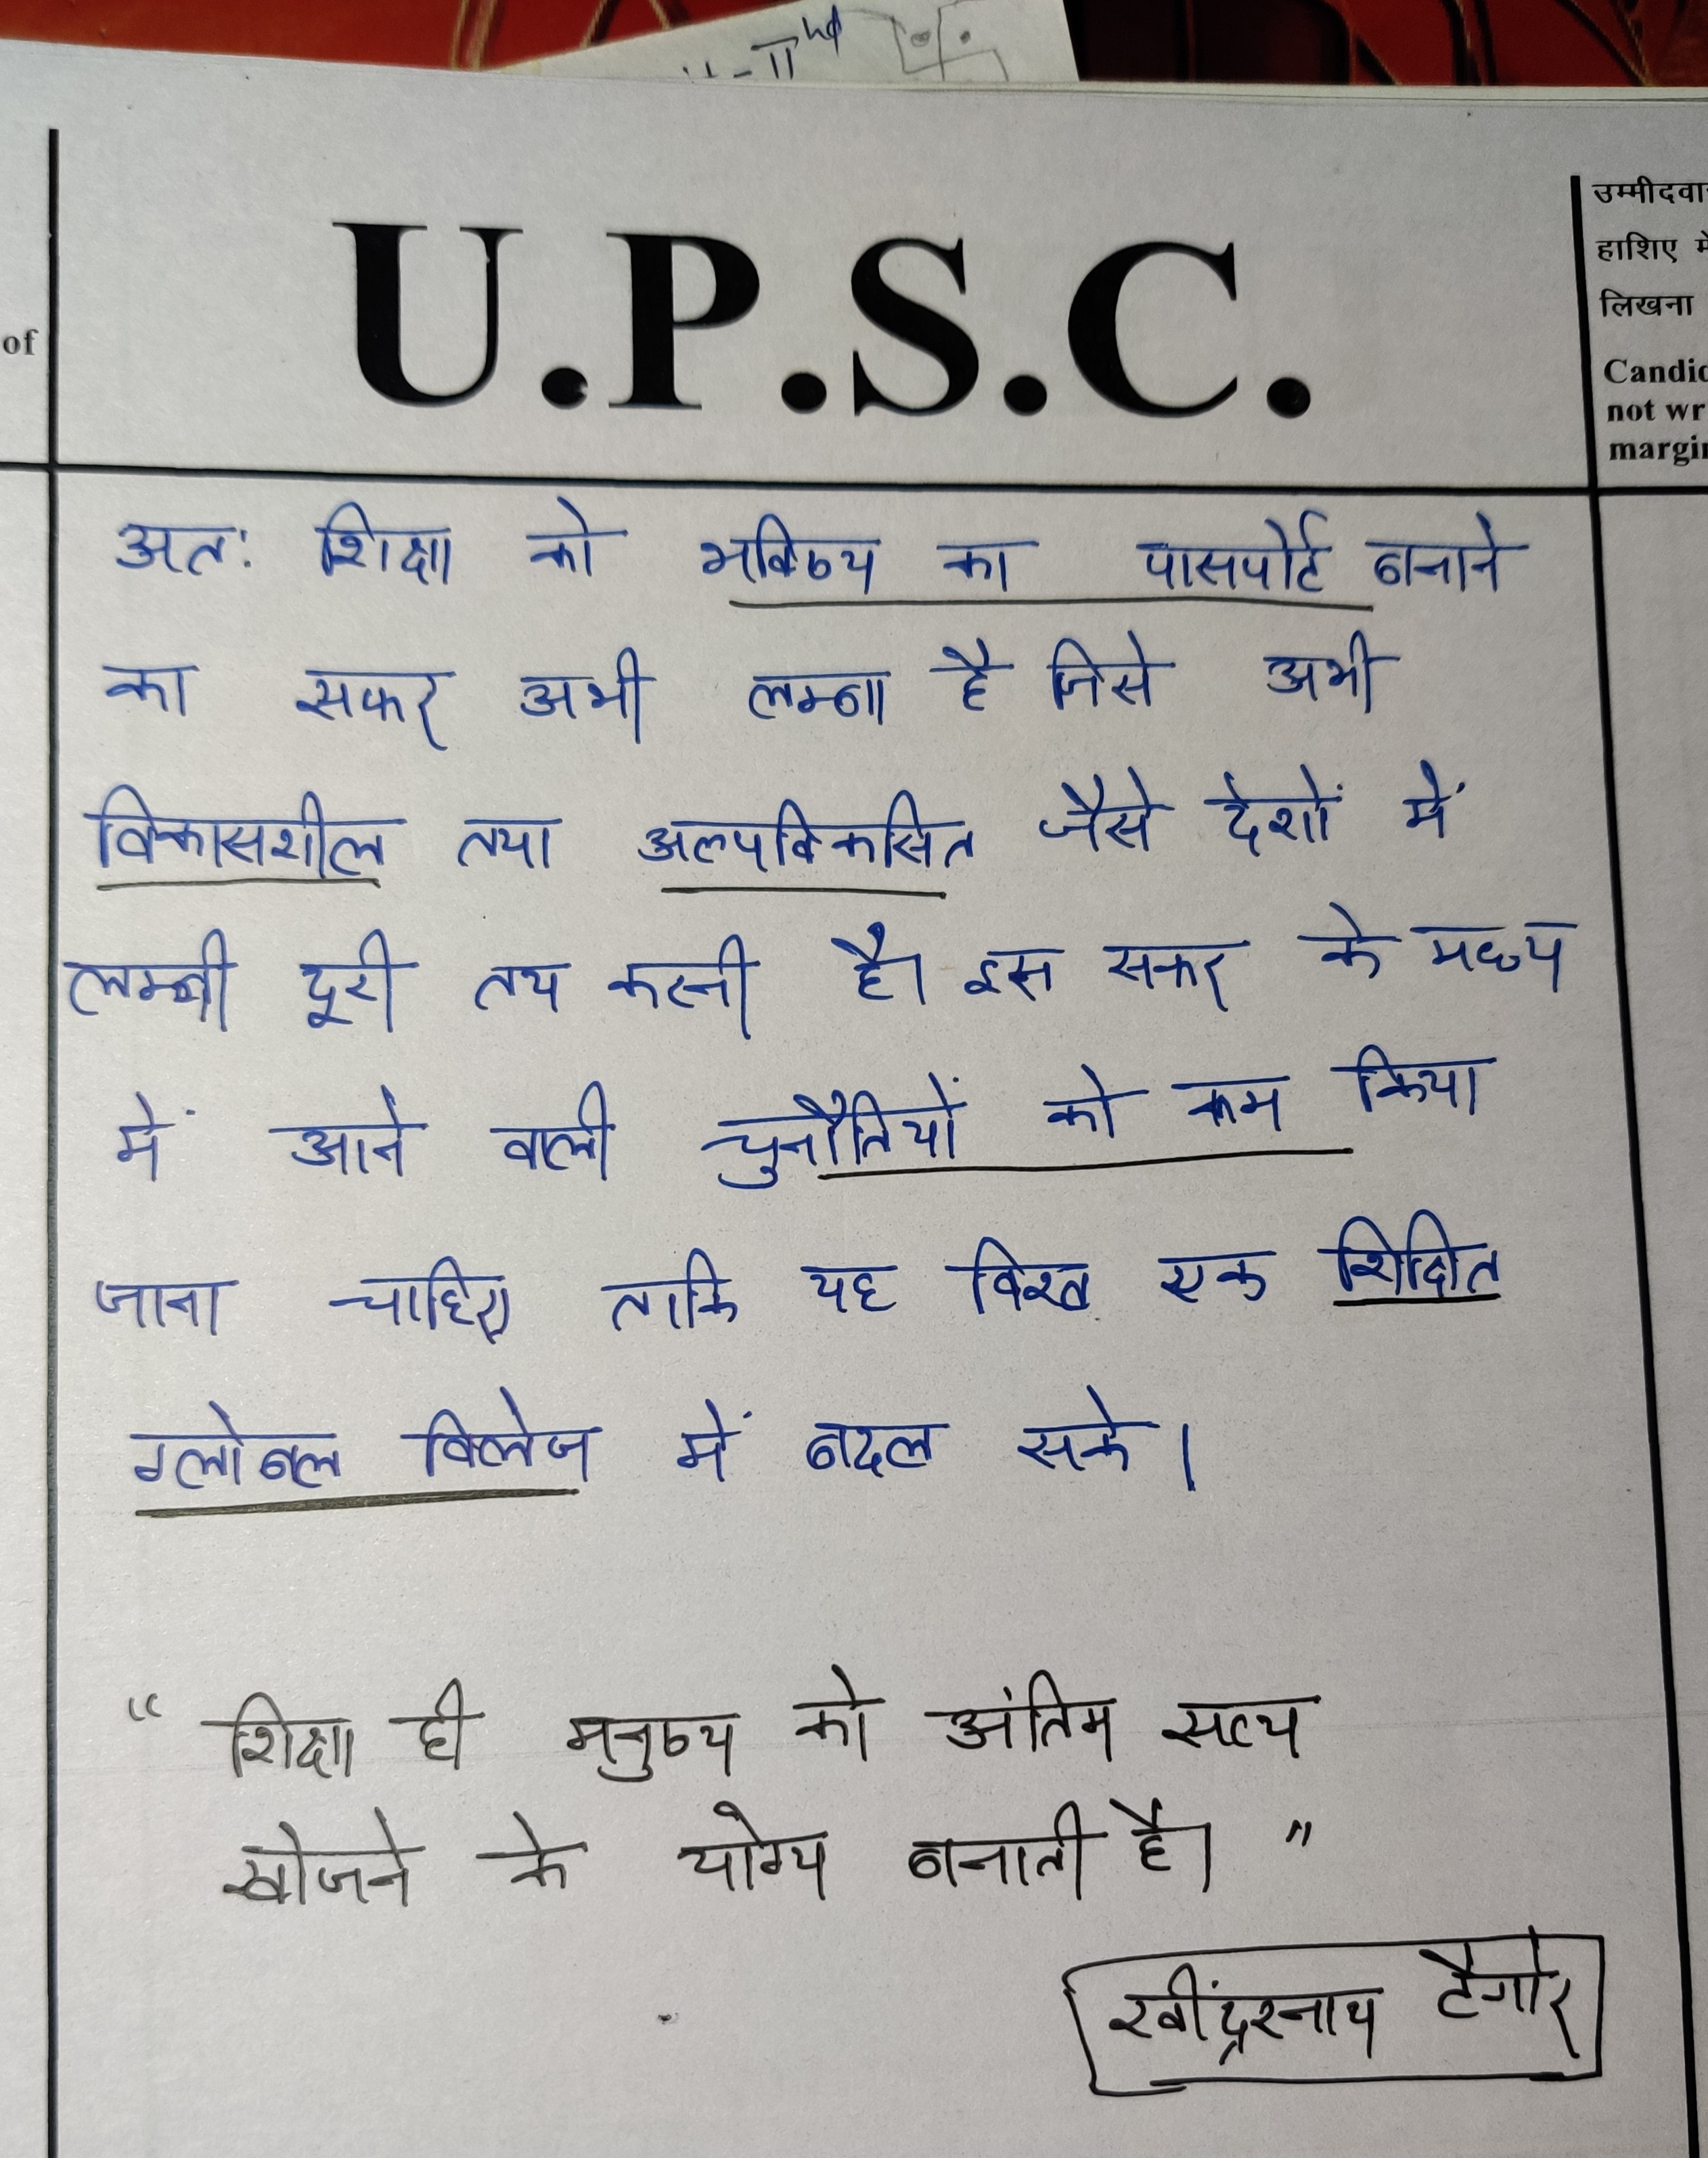 -IInd
U.P.S.C.
of
उम्मीदवा
हाशिए में
लिखना
Candid
not wr
margin
अतः शिक्षा को भविष्य का पासपोर्ट बनाने
का सफर अभी लम्बा है जिसे अभी
विकासशील तथा अल्पविकसित जैसे देशों में
लम्बी दूरी तय करनी है। इस सफर के मध्य
में आने वाली चुनौतियों को कम किया
जाना चाहिए ताकि यह विश्व एक शिक्षित
ग्लोबल विलेज में बदल सके।
“ शिक्षा ही मनुष्य को अंतिम सत्य
खोजने के योग्य बनाती है। ”
रवींद्ररनाथ टैगोर